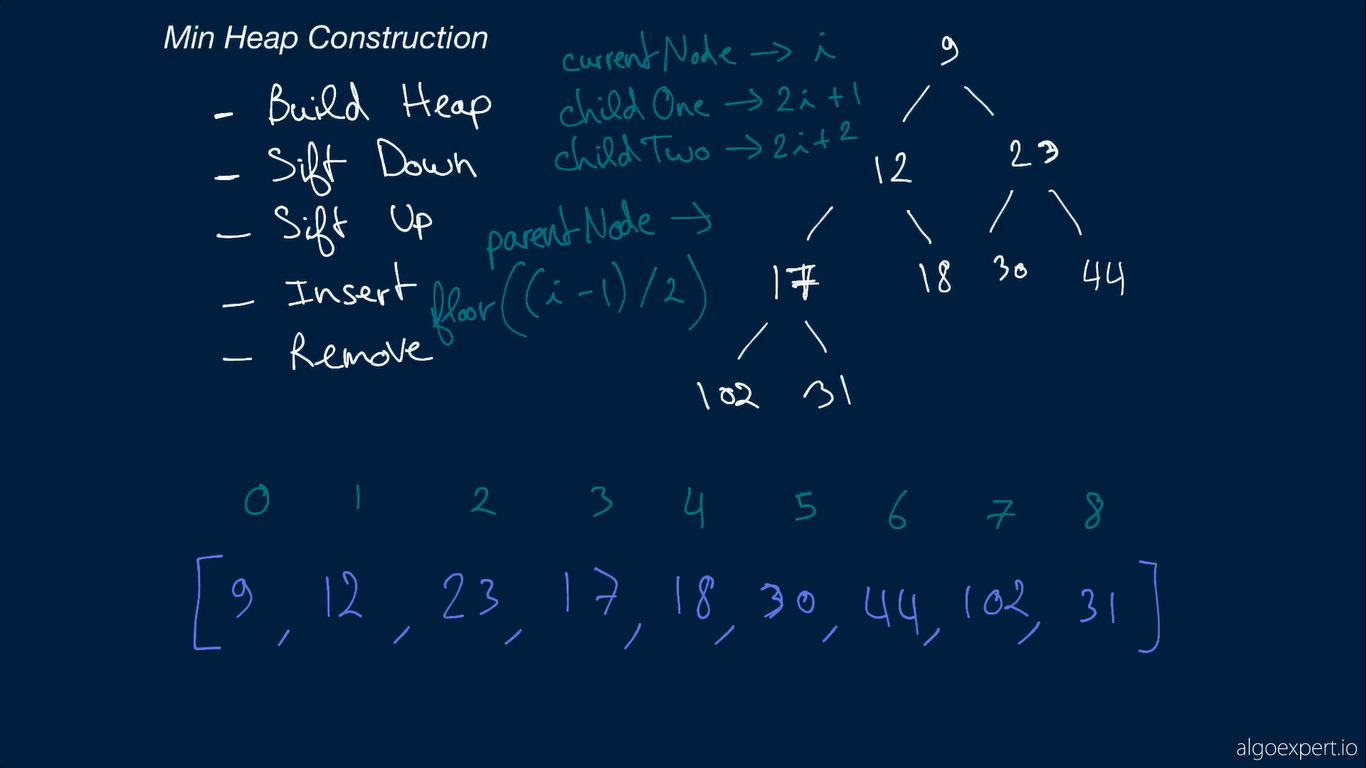 Min Heap Construction
- Build Heap
- Sift Down
- Sift Up
- Insert
- Remove
currentNode → i
childOne → 2i+1
childTwo → 2i+2
parentNode →
floor((i-1)/2)
9
12 23
17 18 30 44
102 31
0 1 2 3 4 5 6 7 8
[9, 12, 23, 17, 18, 30, 44, 102, 31]
algoexpert.io